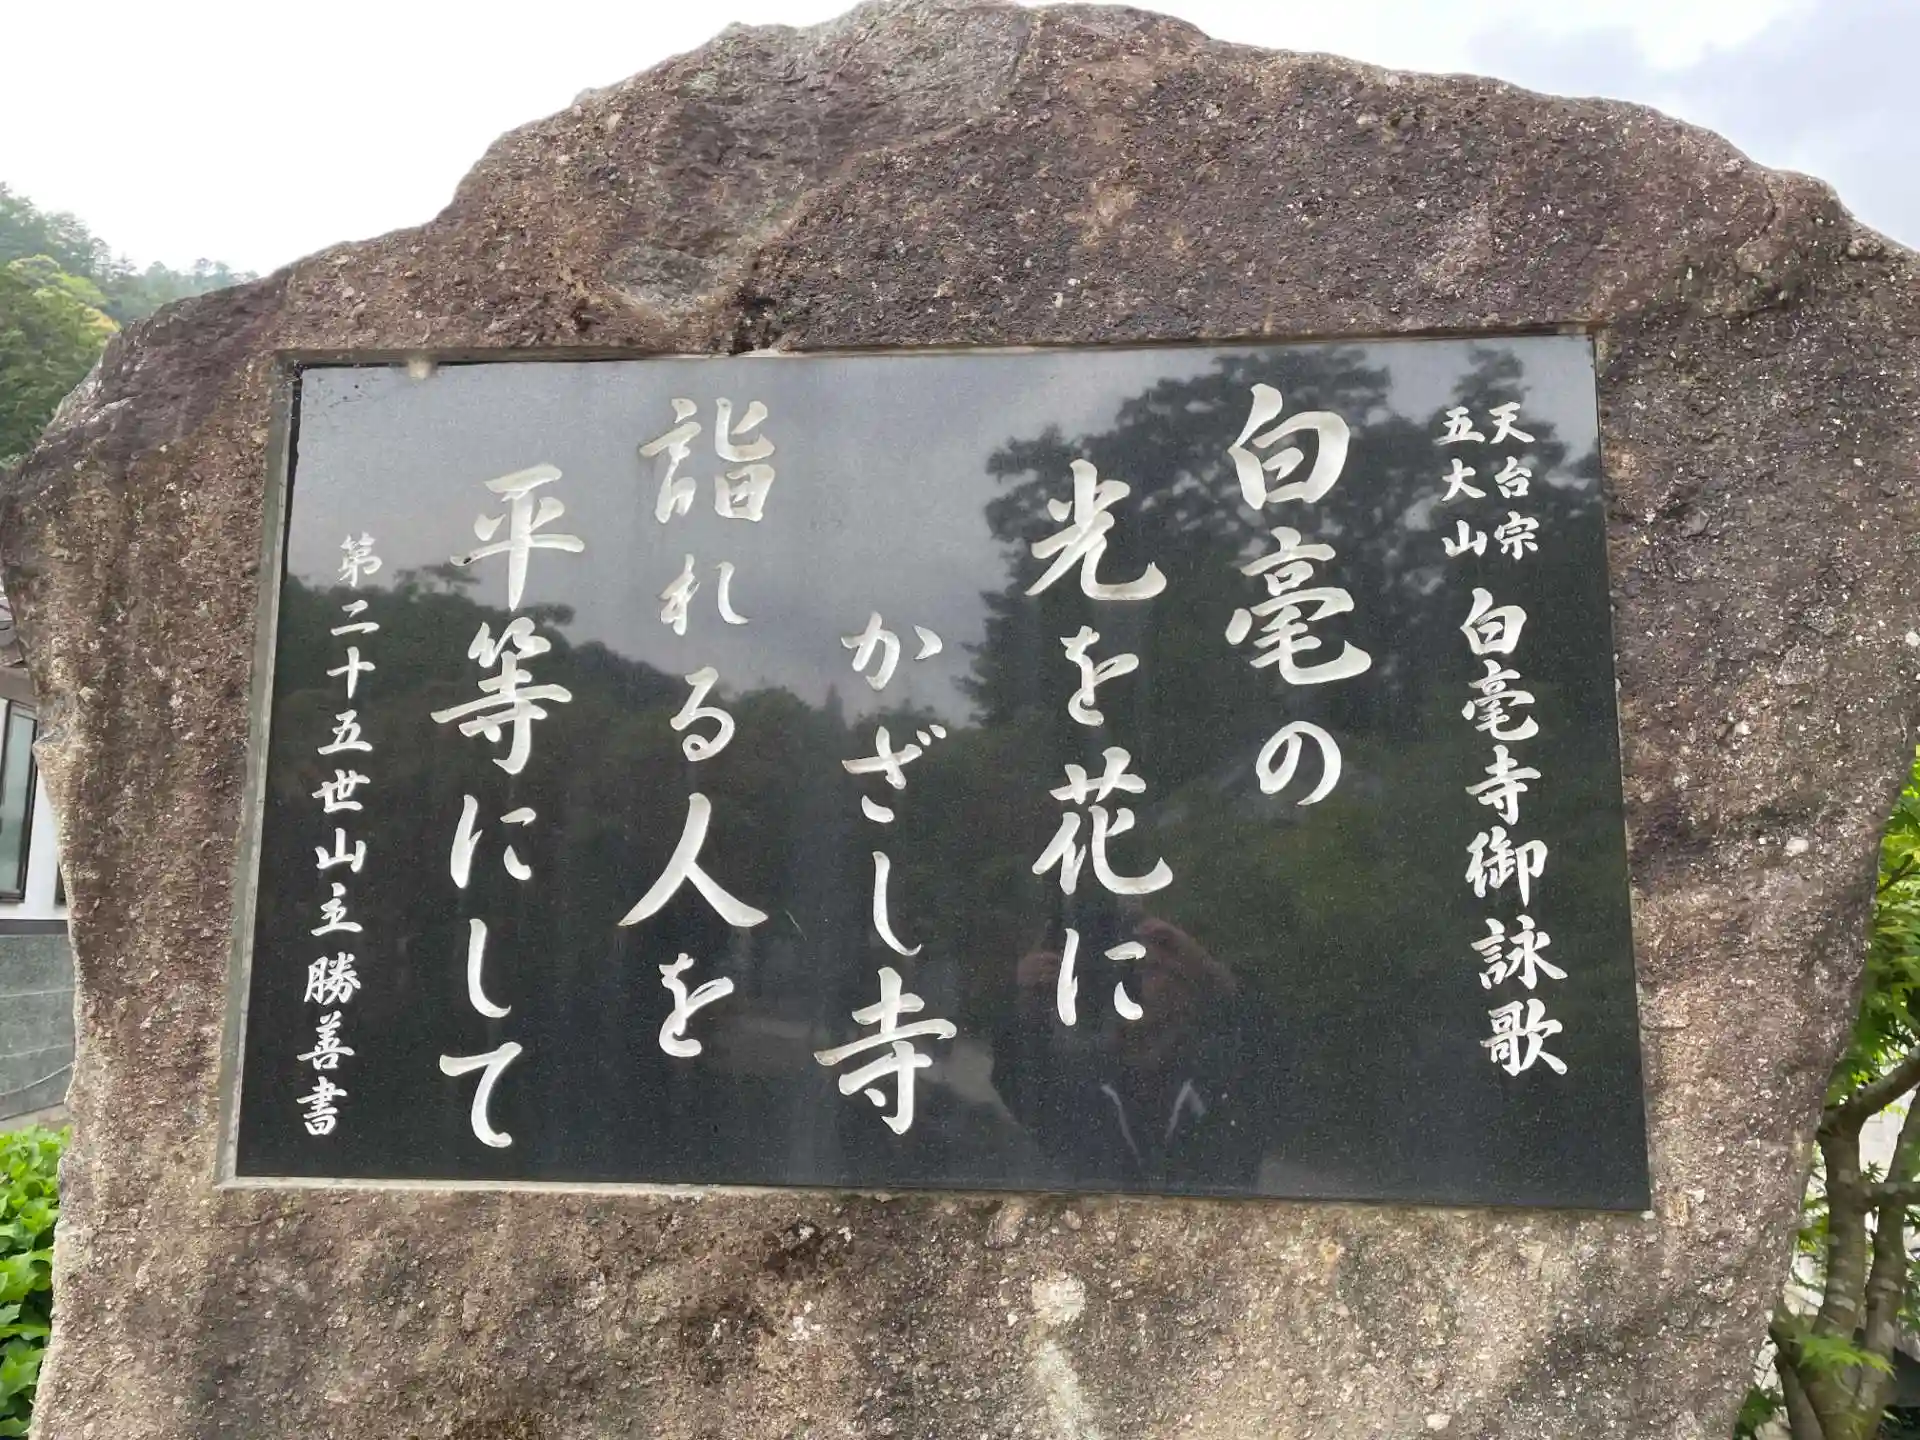 天台宗
五大山
白毫寺御詠歌
白毫の
光を花に
かざし寺
詣れる人を
平等にして
第二十五世山主勝善書